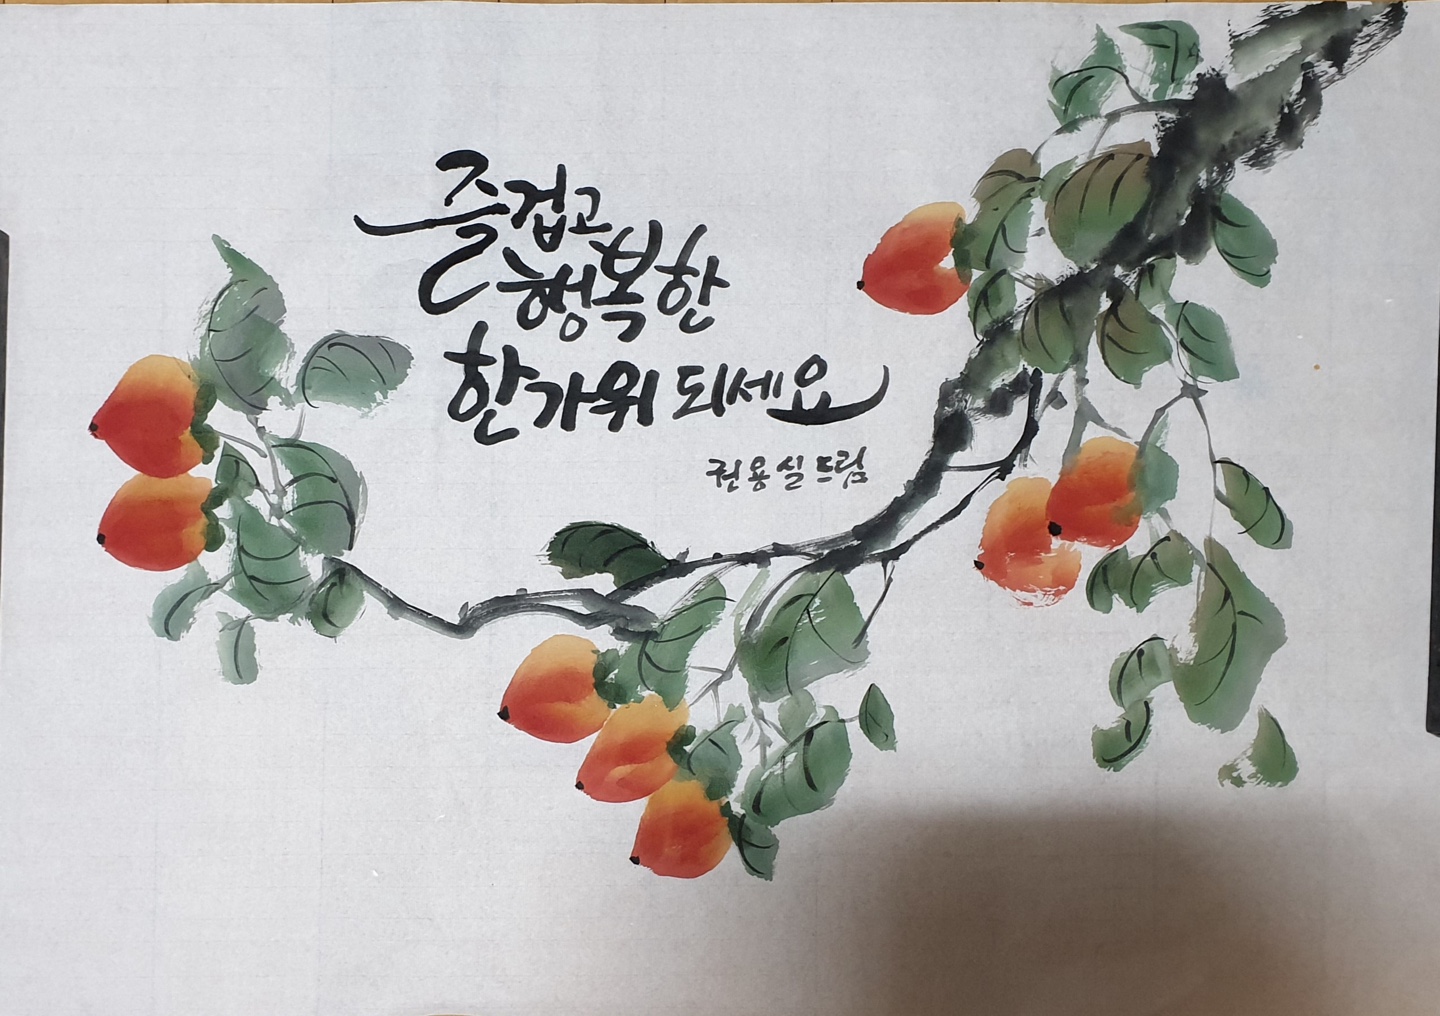 즐겁고
행복한
한가위 되세요
권용실 드림